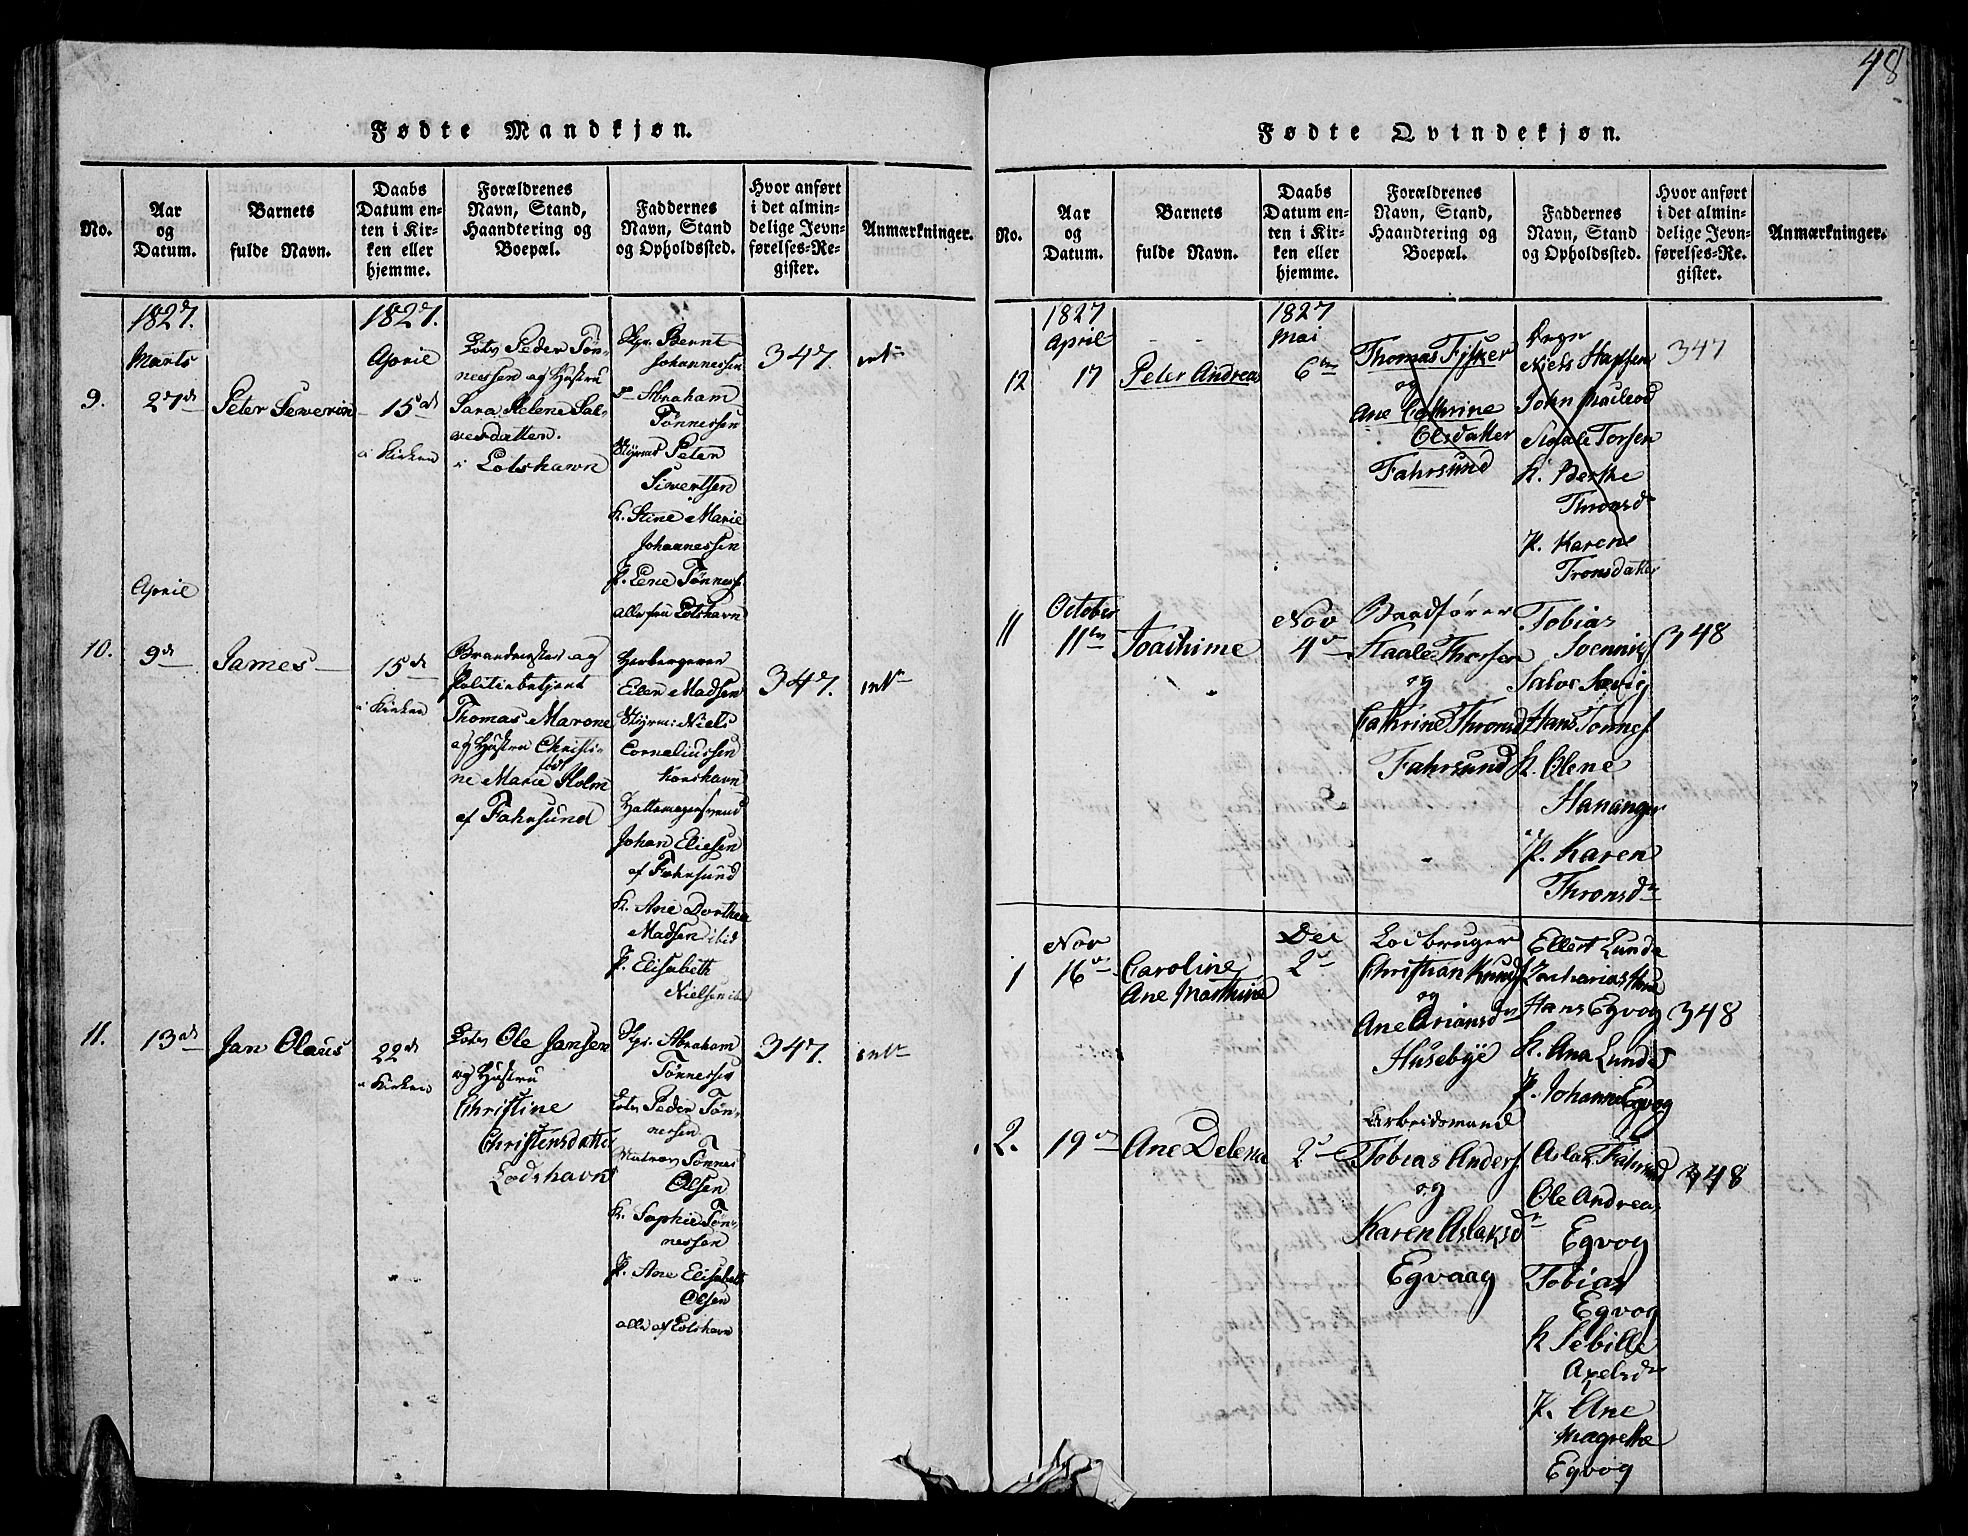 48
Fødte Mandkjøn.
No.
Aar
og
Datum.
Barnets
fulde Navn.
Daabs
Datum en-
ten i Kir-
ken eller
hjemme.
Forældrenes
Navn, Stand,
Haandtering og
Boepæl.
Faddernes
Navn, Stand
og Opholdssted.
Hvor anført
i det almin-
delige Jevn-
førelses-Re-
gister.
Anmærkninger.
1827.
Marts
9.
27de
Peter Severin
1827.
April
15de
i Kirken
Lots Peder Tøn-
nessen og Hustru
Sara Helene Sal-
vesdatter.
i Lotshavn
Skpr. Bernt
Johannessen
Abraham
Tönnessen
Styrmd Peter
Sivertsen
K. Stine Marie
Johannessen
P. Lene Tønness
alle fra Lotshavn
347.
April
10.
9de
James
15de
i Kirken
Brandmester og
Politiebetjent
Thomas Marone
og Hustru Christi-
ne Marie født Holm
af Fahrsund
Herbergerer
Eilert Madsen
Styrm: Niels
Corneliussen
Korshavn
Hattemagersvend
Johan Eliesen
af Fahrsund
K. Ane Dorthea
Madsen ibid
P. Elisabeth
Nielsen ibid
347.
11.
13de
Jan Olaus
22de
i Kirken
Lots Ole Jansen
og Hustru
Christine
Christensdatter
Lodshavn
Skpr. Abraham
Tönnessen
Lots Peder Tøn-
nessen
Matros Tönnes
Olsen
K. Sophie Tøn-
nessen
P. Ane Elisabeth
Olsen
alle af Lotshavn
347.
Fødte Qvindekjøn.
No.
Aar
og
Datum.
Barnets
fulde Navn.
Daabs
Datum en-
ten i Kir-
ken eller
hjemme.
Forældrenes
Navn, Stand,
Haandtering og
Boepæl.
Faddernes
Navn, Stand
og Opholdssted.
Hvor anført
i det almin-
delige Jevn-
førelses-Re-
gister.
Anmærkninger.
1827
April
12
17
Peter Andreas
1827
Mai
6te
Thomas Fisker
og
Ane Cathrine
Olsdatter
Fahrsund
Niels Hansen
John Macleod
Torsen
K. Berthe
Thronsd
P. Karene
Tronsdatter
347
October
11
11te
Joachime
Nov
4de
Baadfører
Staale Thorsen
og
Cathrine Thronsd
Fahrsund
Tobias
Salve
Hans Tønnes
K. Olene
Hananger
P. Karen
Thronsdr
348
Nov
1
16de
Caroline
Ane Marthine
Dec
2de
Lodbruger
Christian Knuds
og
Ane Arians dr
Husebye
Ellert Lunde
Zacharias
Hans Egvog
K. Ana Lunde
P. Johanne Egvog
348
2.
19de
Ane Delena
2de
Arbeidsmand
Tobias Anders
og
Karen Aslaksdr
Egvaag
Aslak Fahrsund
Ole Andreas
Egvog
Tobias
Egvog
K Sebille
Axelsdr
P. Ane
Magrethe
Egvog
348